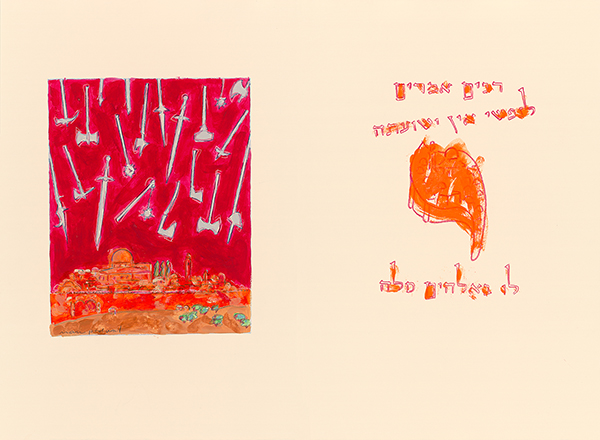 רבים אמרים
לנפשי אין ישועתה
לו באלהים סלה